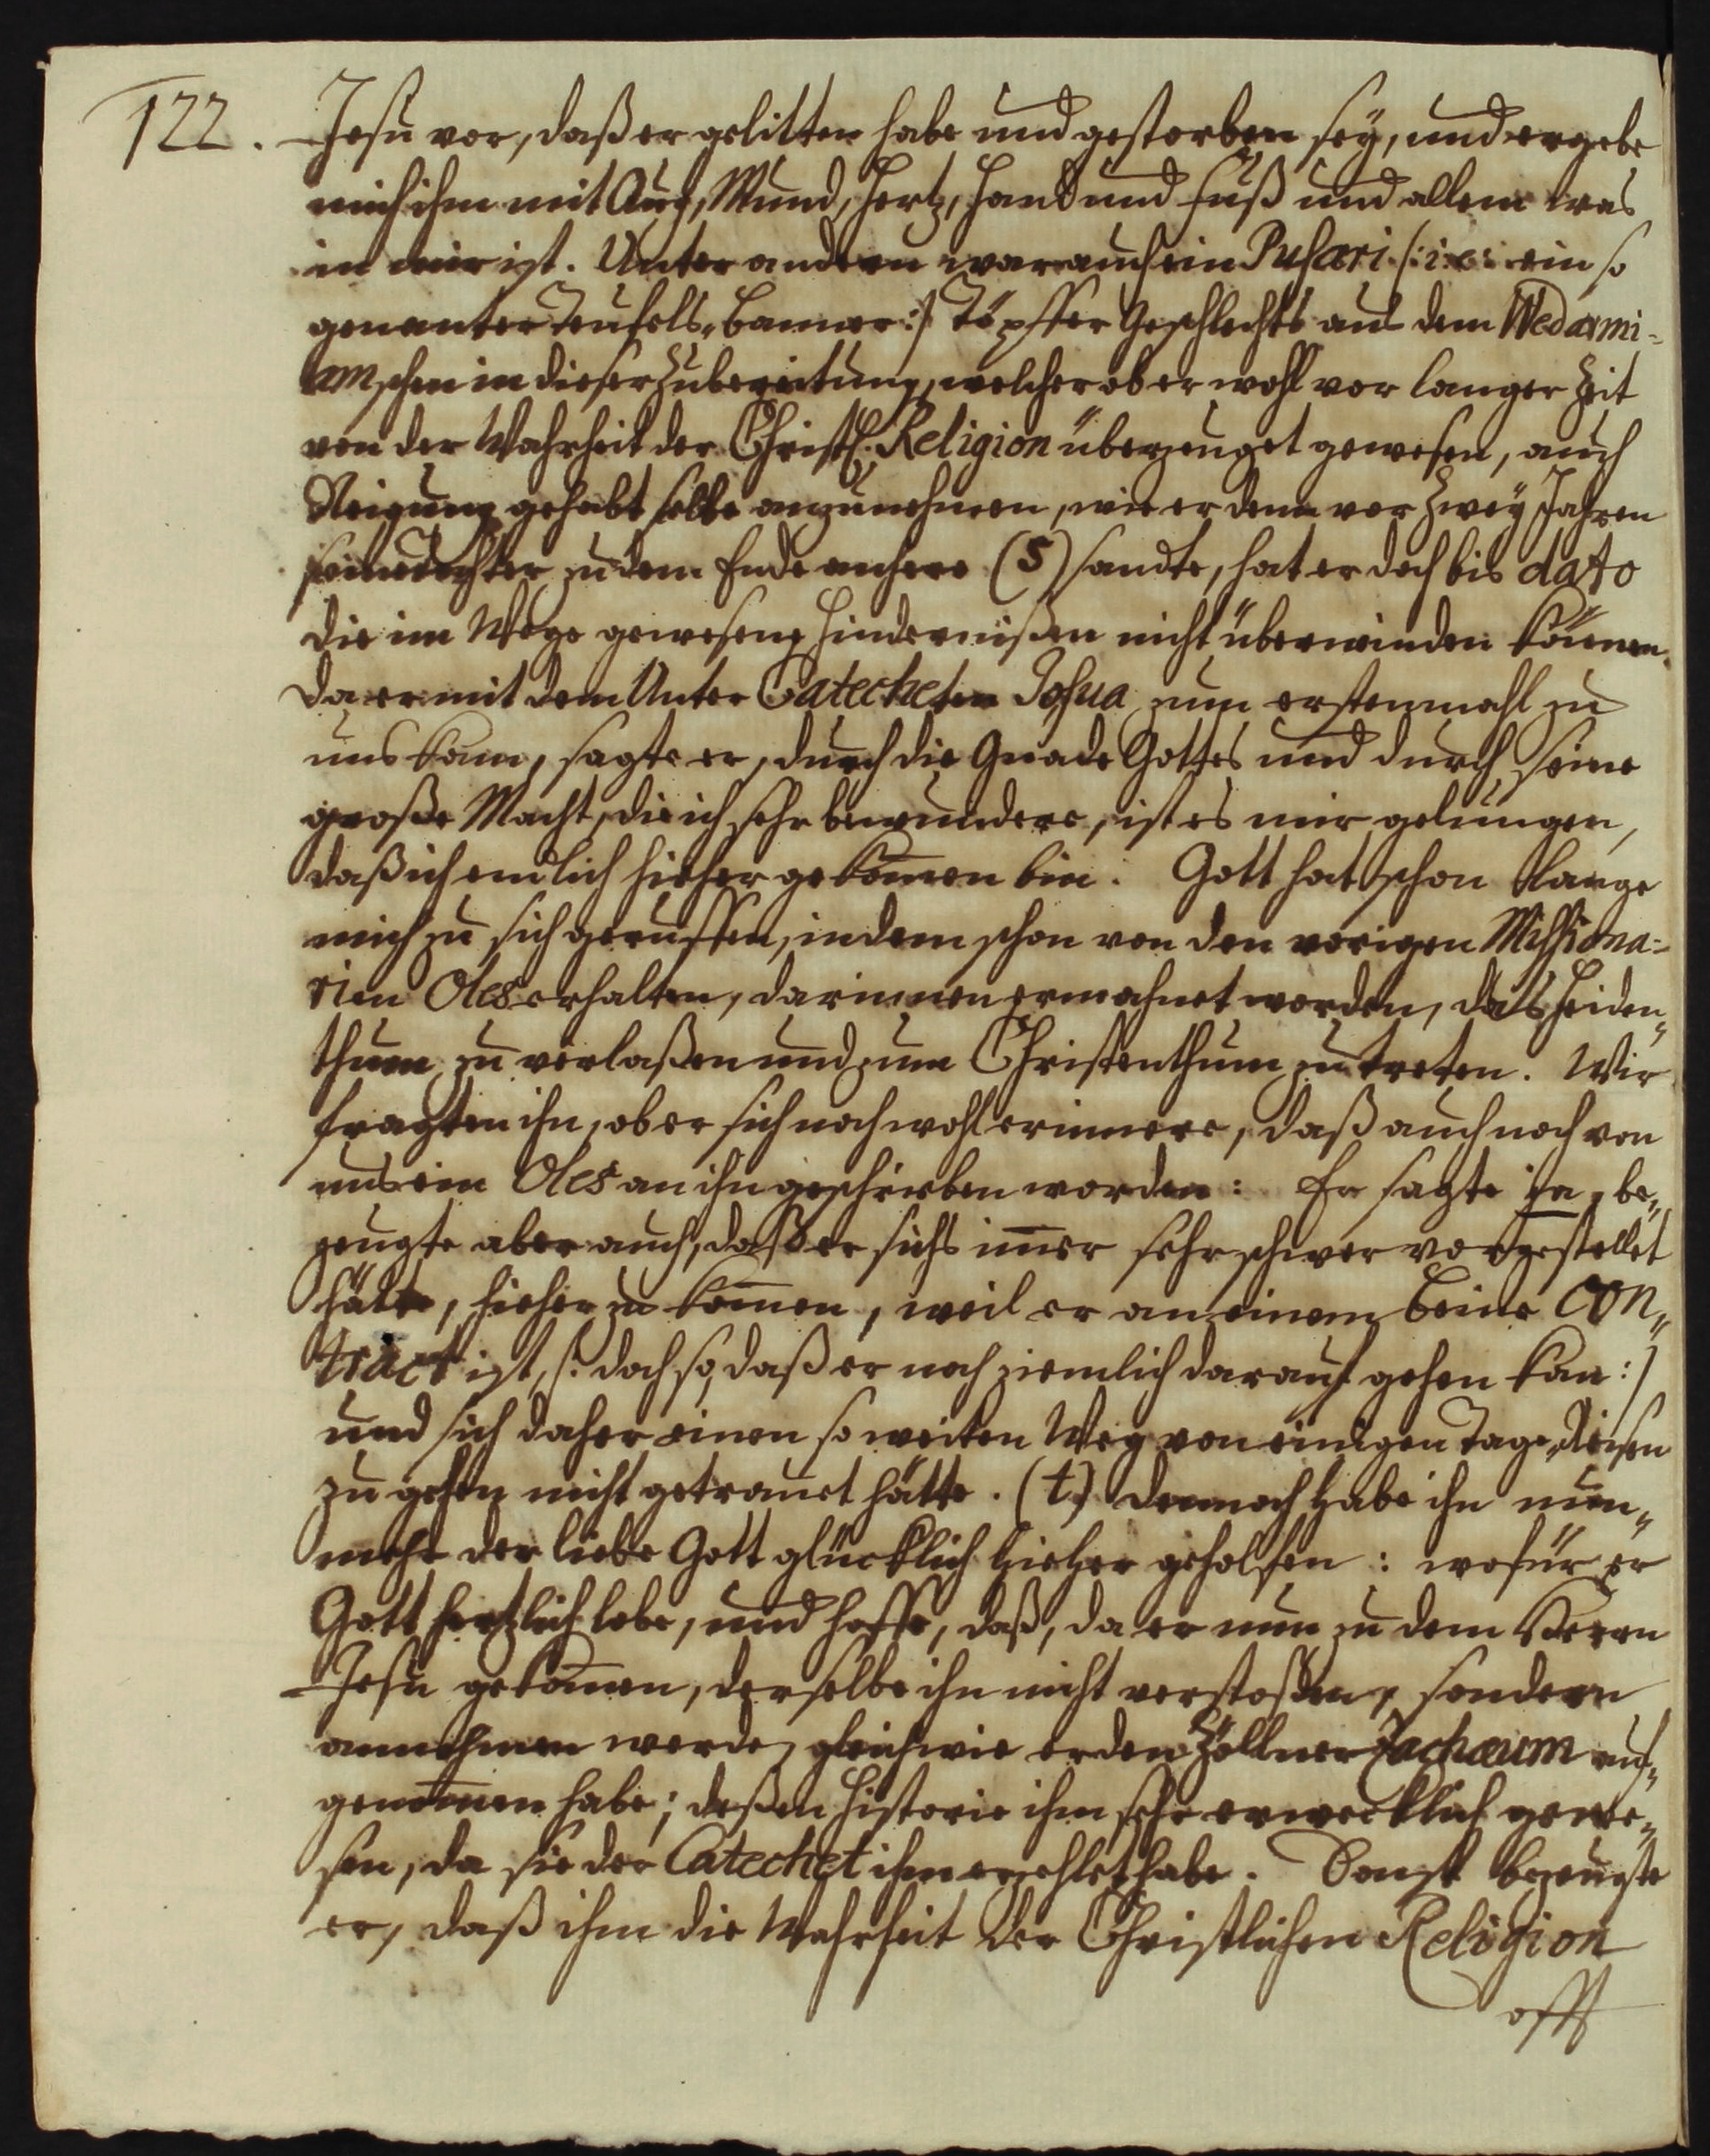 122. Jesu vor, daß er gelitten habe und gestorben sey, und ergebe
mich ihm mit Aug, Mund, Hertz, Hand und Fuß und allem was
in mir ist. Unter andern war auch ein Pusari /: i. e. ein so
genanter Teufels-Banner :/ Töpffer Geschlechts aus dem Wedarmi-
amschen in dieser Zubereitung, welcher ob er wohl vor langer Zeit
von der Wahrheit der Christl. Religion überzeuget gewesen, auch
Neigung gehabt selbe anzunehmen, wie er denn vor zwey Jahren
seine Tochter zu dem Ende anhero (S) sandte, hat er doch bis dato
die im Wege gewesene Hindernißen nicht überwinden können.
Da er mit dem Unter Catecheten Josua zum erstenmahl zu
uns kam, sagte er, durch die Gnade Gottes und durch seine
große Macht, die ich sehr bewundere, ist es mir gelungen,
daß ich endlich hieher gekom̅en bin. Gott hat schon lange
mich zu sich geruffen, indem schon von den vorigen Missiona-
rien Oles erhalten, darinnen ermahnet worden, das Heiden-
thum zu verlaßen und zum Christenthum zu treten. Wir
fragten ihn, ob er sich noch wohl erinnere, daß auch noch von
uns ein Oles an ihn geschrieben worden: Er sagte ja, be-
zeugte aber auch, daß er sichs im̅er sehr schwer vorgestellet
hätte, hieher zu kom̅en, weil er an einem Beine con-
tract ist, /: doch so, daß er noch ziemlich darauf gehen kan :/
und sich daher einen so weiten Weg von einigen Tage-Reisen
zu gehen nicht getrauet hätte. (t) Dennoch habe ihn nun-
mehr der liebe Gott glücklich hieher geholfen: wofür er
Gott hertzlich lobe, und hoffe, daß, da er nun zu dem Herrn
Jesu gekom̅en, derselbe ihn nicht verstoßen, sondern
annehmen werde, gleichwie er den Zöllner Zachæum auf-
genom̅en habe; deßen Historie ihm sehr erwecklich gewe-
sen, da sie der Catechet ihm erzehlet habe. Sonst bezeugte
er, daß ihm die Wahrheit der Christlichen Religion
offt